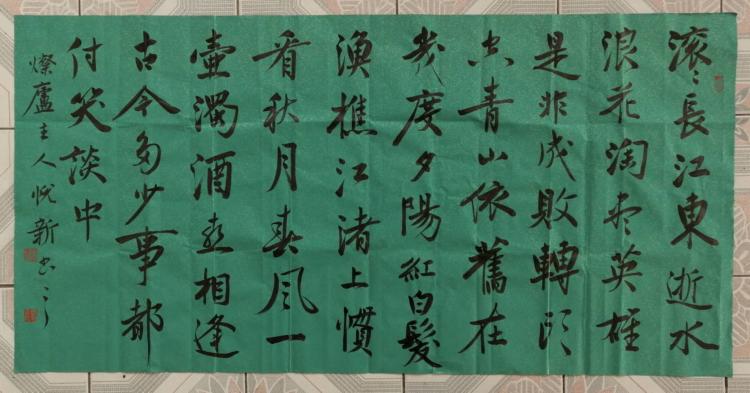 滚滚長江東逝水
浪花淘尽英雄
是非成敗轉头
空青山依舊在
幾度夕陽紅白髮
漁樵江渚上慣
看秋月春风一
壷濁酒喜相逢
古今多少事都
付笑談中
燦廬主人悦新书之